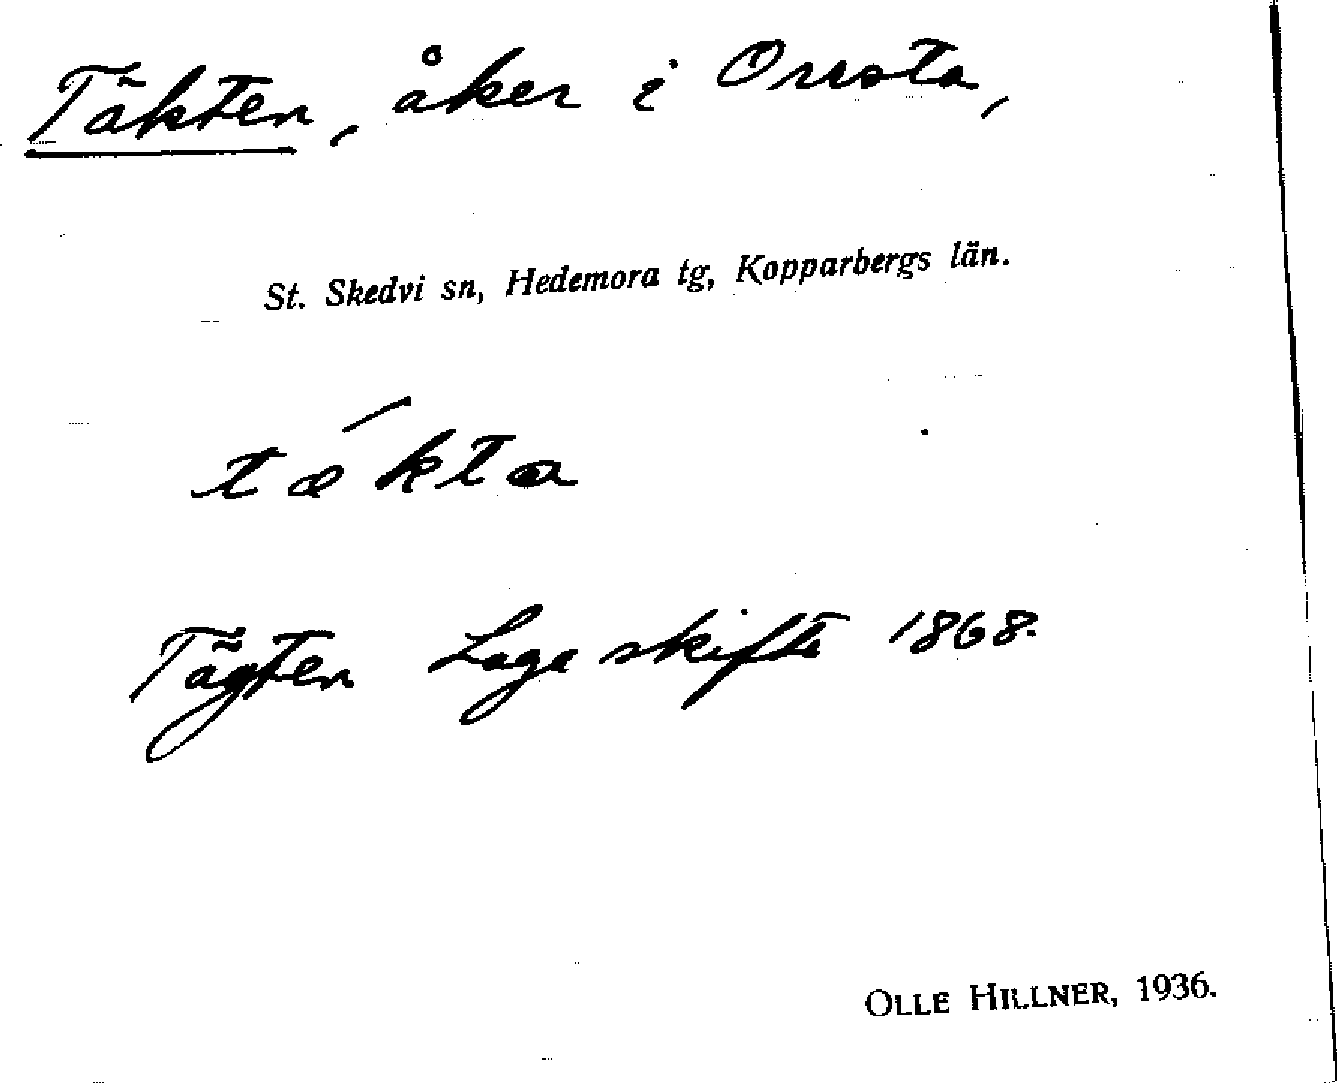 Täkten, åker i Orrsta,
St. Skedvi sn, Hedemora tg, Kopparbergs län.
tǽkta
Tägten Laga skifte 1868.
OLLE HILLNER, 1936.